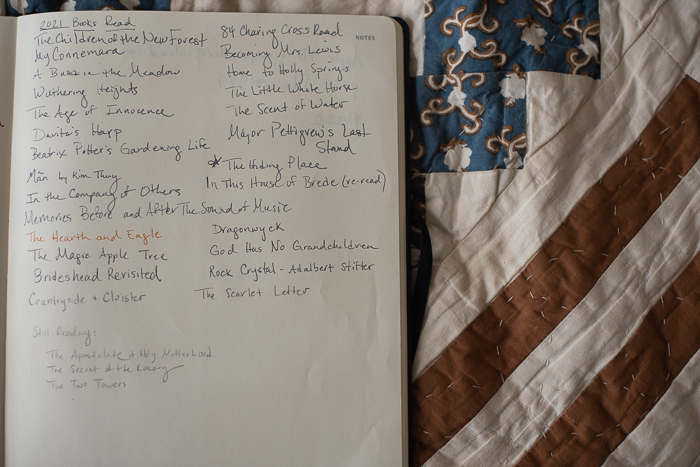 2021 Books Read
The Children of the New Forest
My Connemara
A Bush in the Meadow
Wuthering Heights
The Age of Innocence
Davita's Harp
Beatrix Potter's Gardening Life
Mãn by Kim Thuy
In the Company of Others
Memories Before and After The Sound of Music
The Hearth and Eagle
The Magic Apple Tree
Brideshead Revisited
Countryside & Cloister
Still-Reading:
The Apostolate of Holy Motherhood
The Secret of the Rosary
The Two Towers
NOTES
84 Charing Cross Road
Becoming Mrs. Lewis
Home to Holly Springs
The Little White Horse
The Scent of Water
Major Pettigrew's Last
Stand
* The Hiding Place
In This House of Brede (re-read)
Dragonwyck
God Has No Grandchildren
Rock Crystal - Adalbert Stifter
The Scarlet Letter